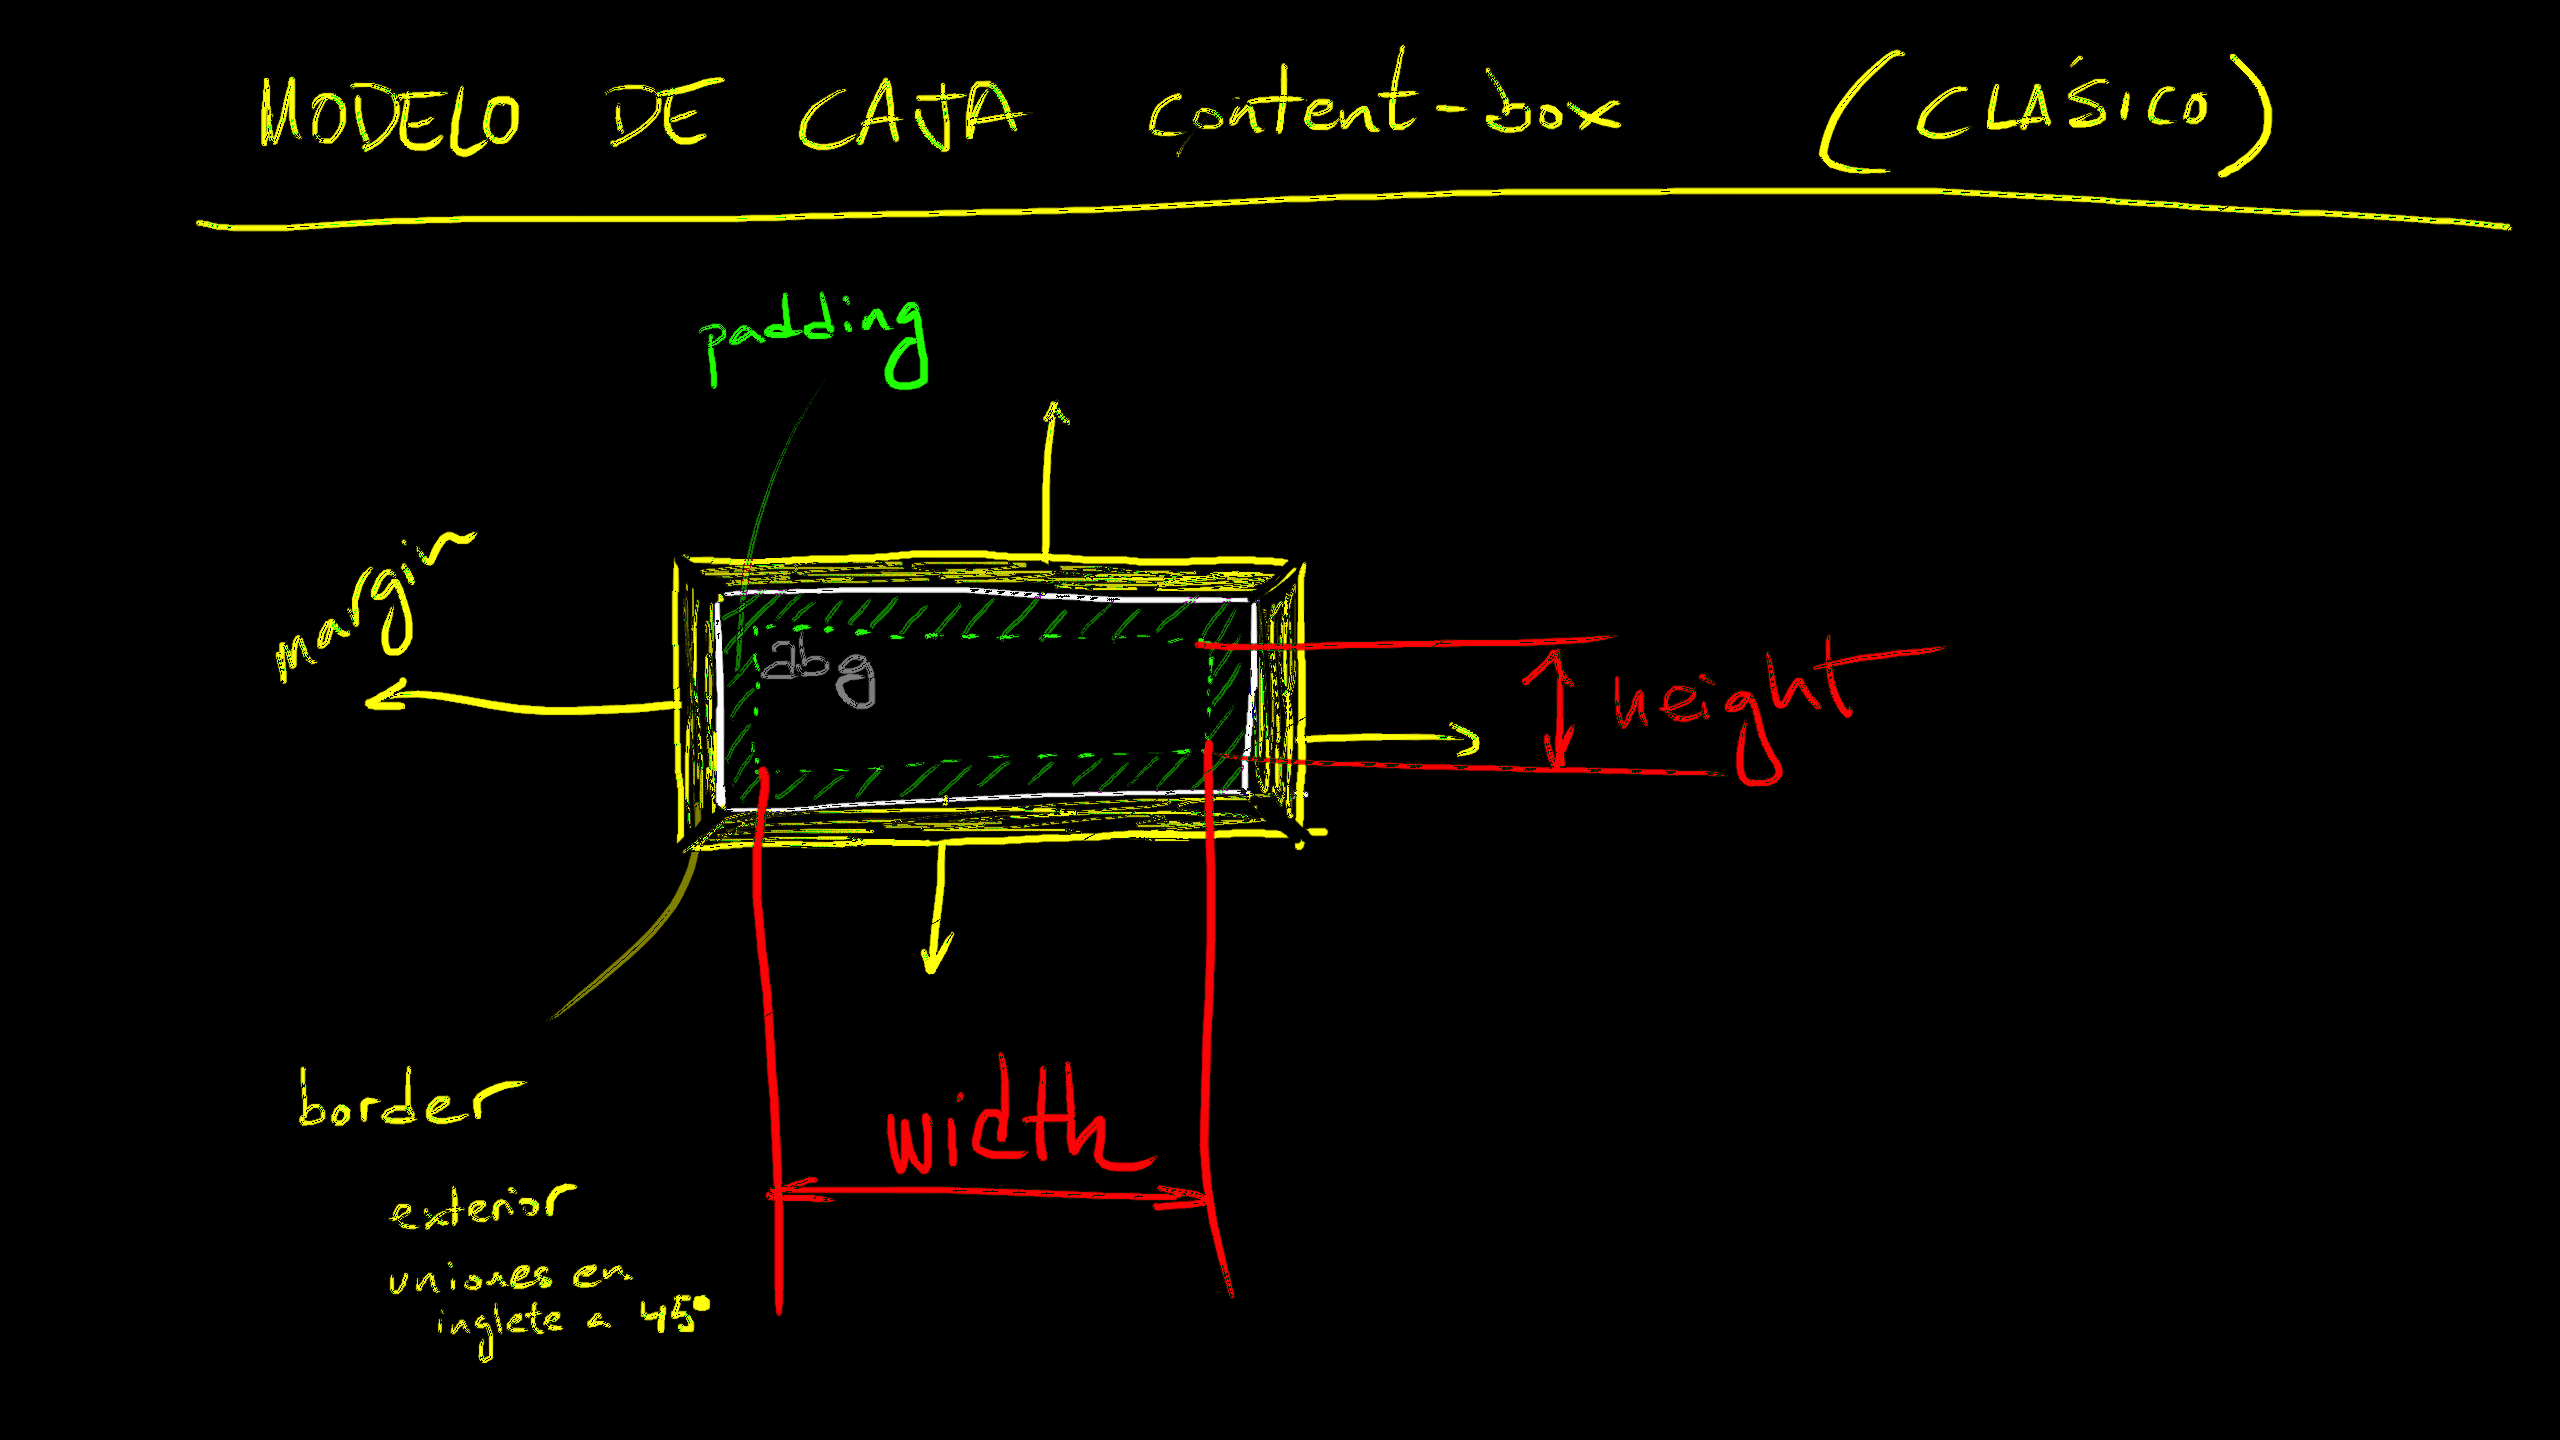 MODELO DE CAJA content-box (CLÁSICO)
padding
margin
abg
height
border
width
exterior
uniones en
inglete a 45º